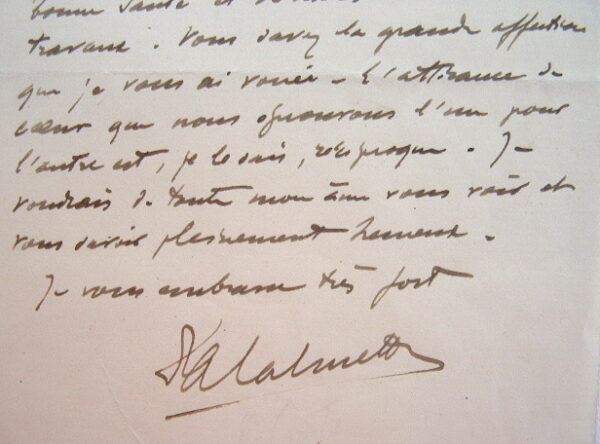 bonne santé et
travaux. Vous savez la grande affection
que je vous ai vouée. L'attirance de
cœur que nous éprouvons l'un pour
l'autre est, je le sais, réciproque. Je
voudrais de toute mon âme vous voir et
vous savoir pleinement heureux.
Je vous embrasse très fort